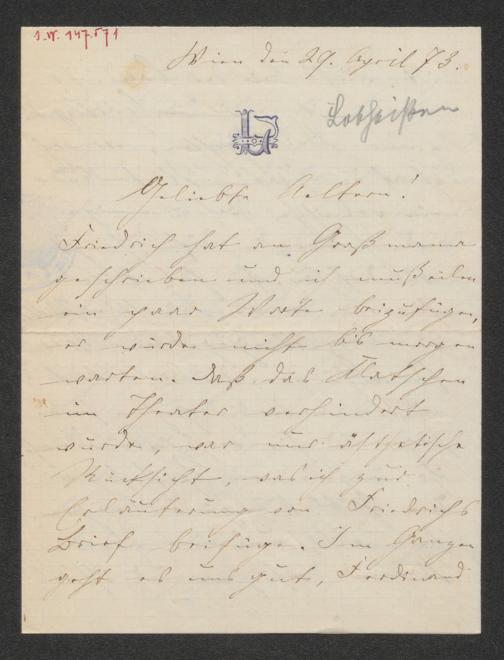 I.N. 147.571
Wien den 29. April 73.
Lotheißen
L
Geliebte Aeltern!
Friedrich hat an Großmama
geschrieben und ich muß eilen
ein paar Worte beizufügen,
er würde nicht bis morgen
warten. Daß das Klatschen
im Theater verhindert
wurde, war nur ästhetische
Rücksicht, was ich zur
Erläuterung von Friedrichs
Brief beifüge. Im Ganzen
geht es uns gut, Ferdinand